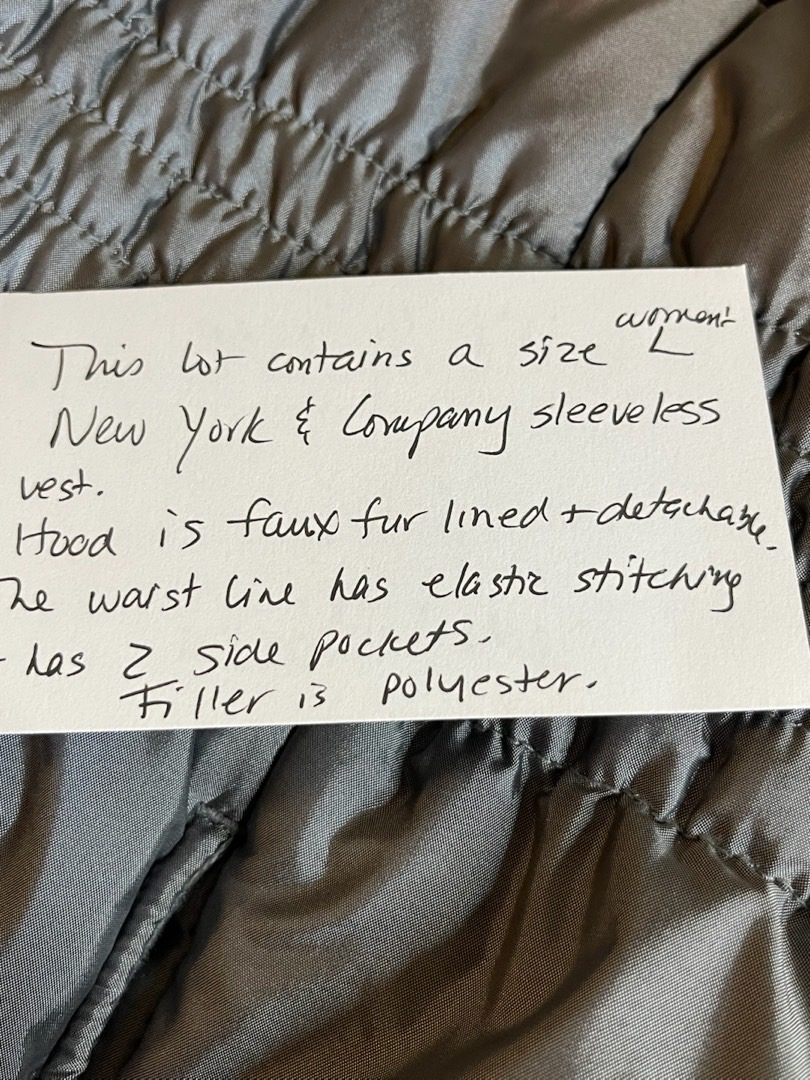 This lot contains a size women's L
New York & Company sleeveless
vest.
Hood is faux fur lined + detachable.
he waist line has elastic stitching
has 2 side pockets.
Filler is polyester.